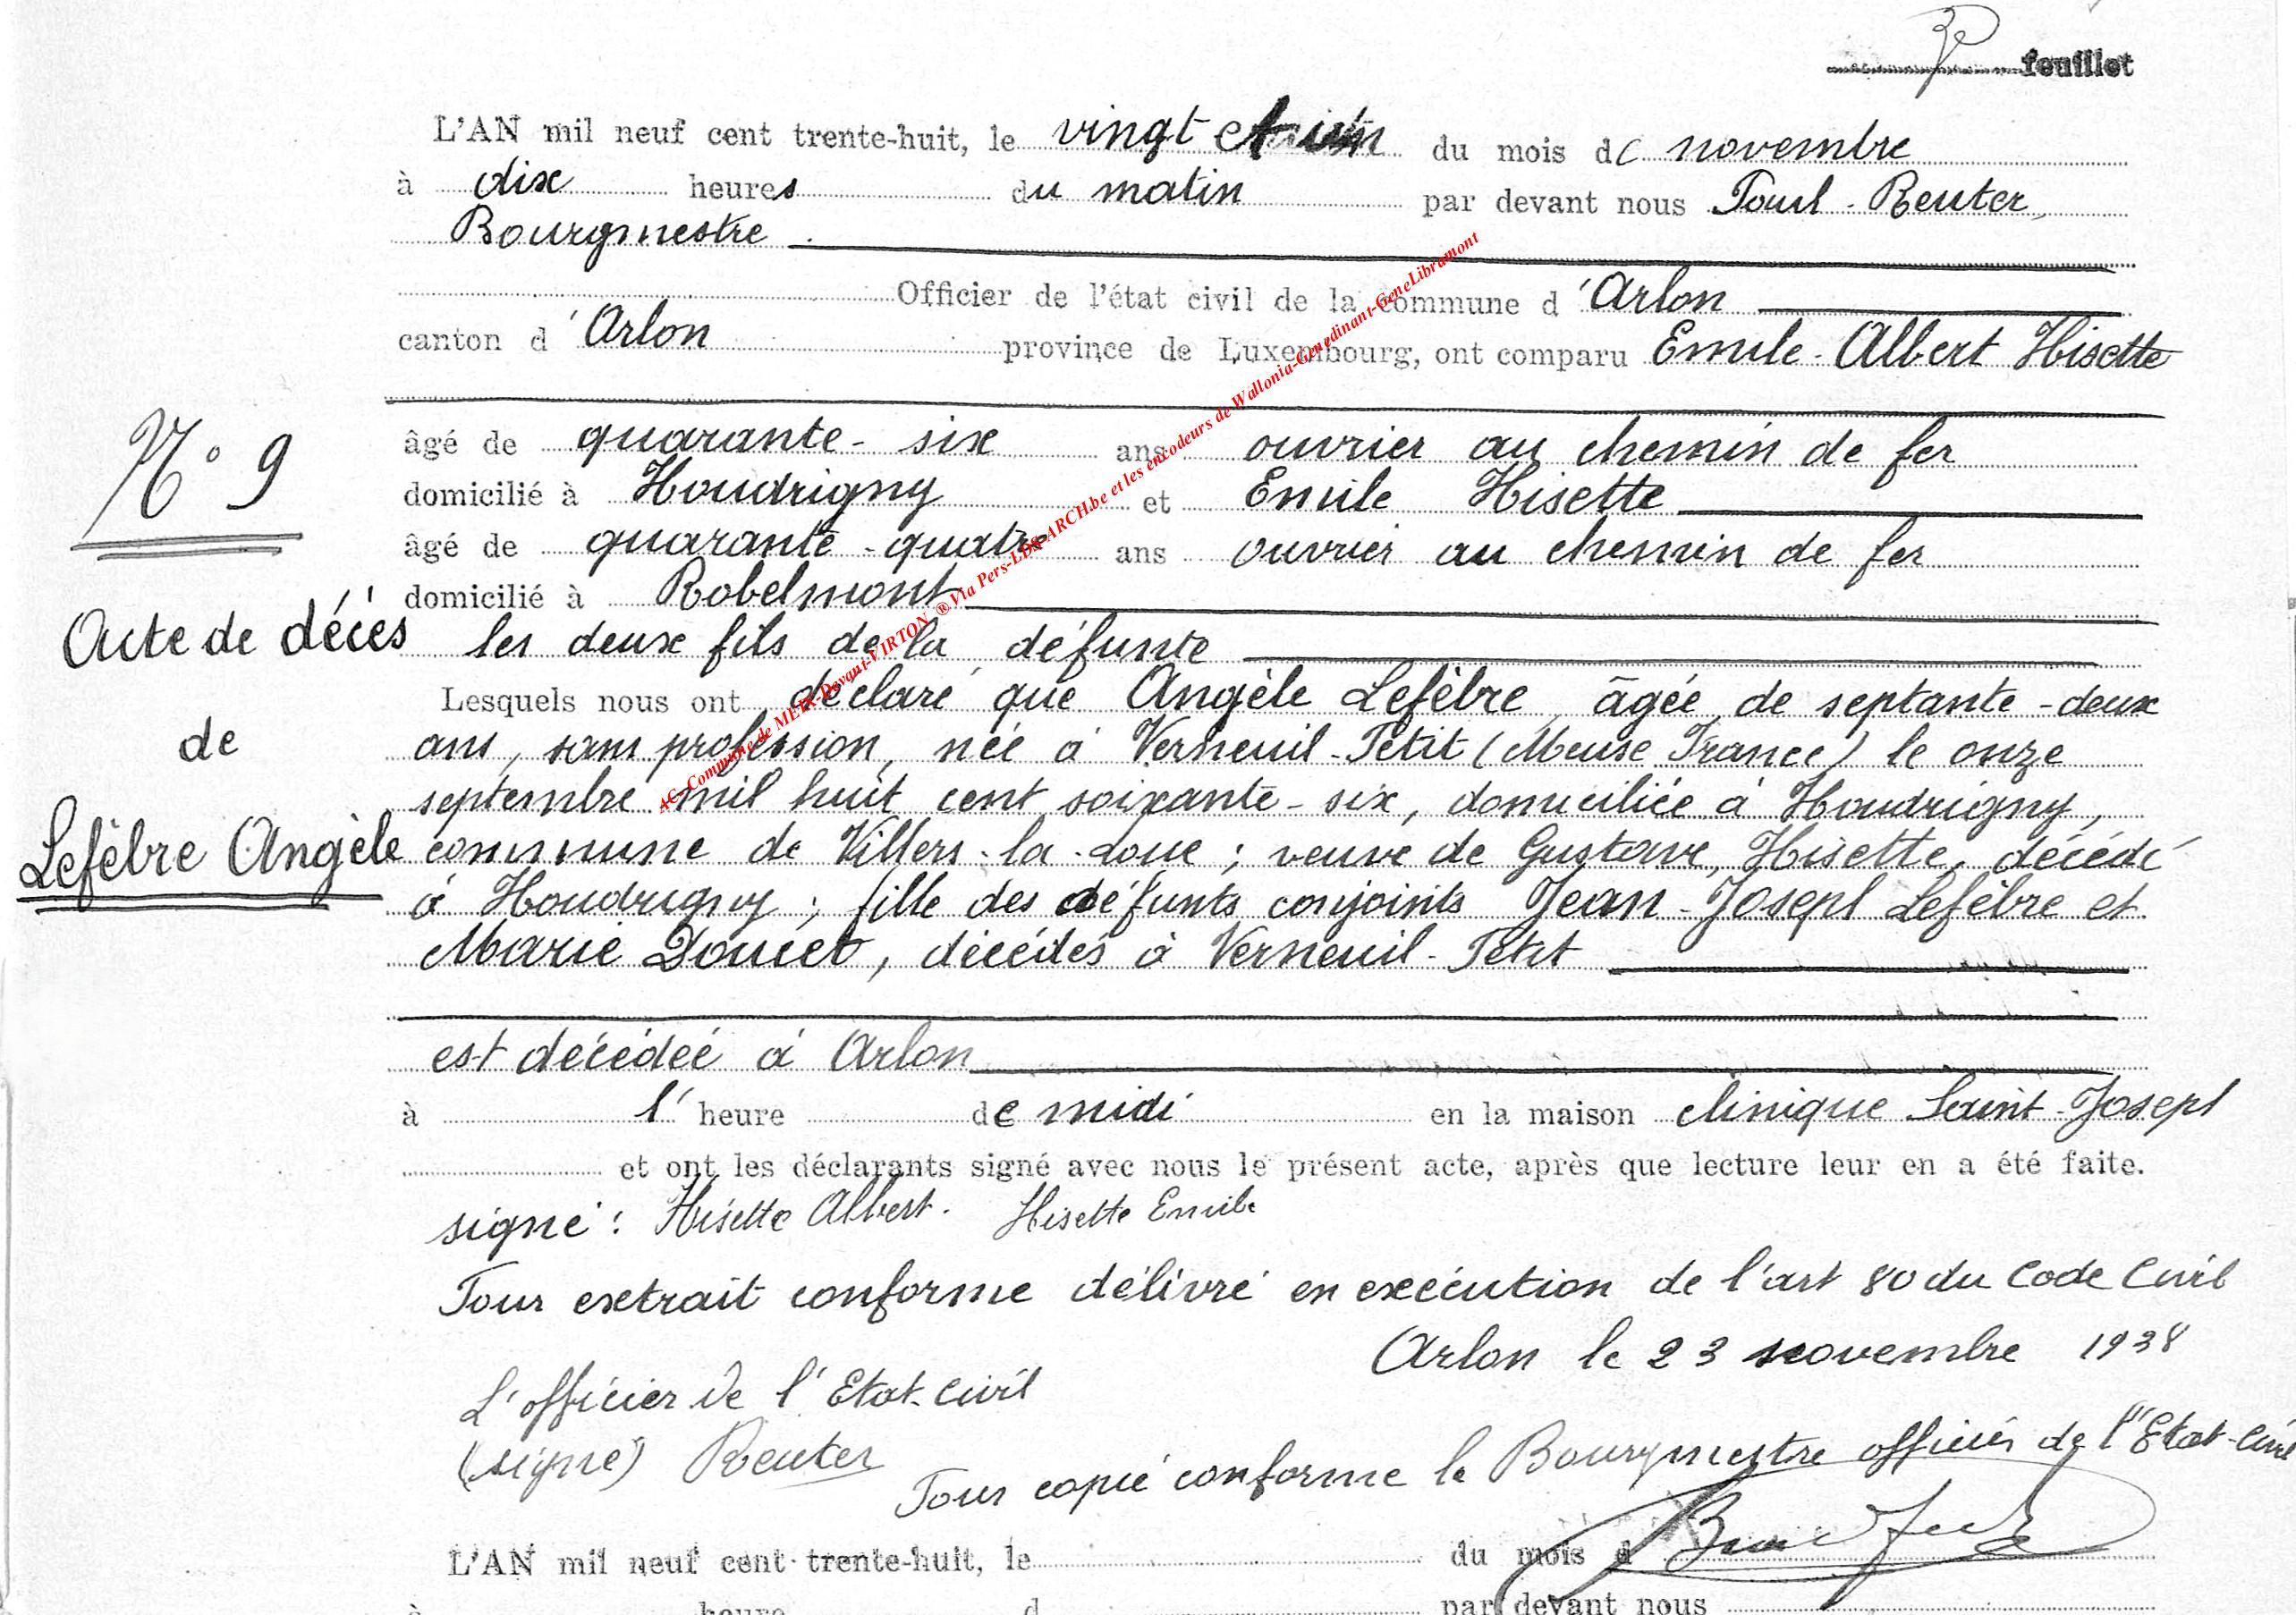 3e feuillet
L'AN mil neuf cent trente-huit, le vingt et un du mois de novembre
à dix heures du matin par devant nous Paul Reuter,
Bourgmestre
Officier de l'état civil de la commune d'Arlon
canton d'Arlon province de Luxembourg, ont comparu Emile-Albert Hisette
N° 9
âgé de quarante-six ans ouvrier au chemin de fer
domicilié à Houdrigny et Emile Hisette
âgé de quarante-quatre ans ouvrier au chemin de fer
domicilié à Robelmont
Acte de décès
de
Lefèbre Angèle
les deux fils de la défunte
Lesquels nous ont déclaré que Angèle Lefèbre âgée de septante-deux
ans, sans profession, née à Verneuil-Petit (Meuse France) le onze
septembre mil huit cent soixante-six, domiciliée à Houdrigny,
commune de Villers-la-Loue ; veuve de Gustave Hisette, décédé
à Houdrigny ; fille des défunts conjoints Jean-Joseph Lefèbre et
Marie Doucet, décédés à Verneuil-Petit
est décédée à Arlon
à l'heure de midi en la maison clinique Saint-Joseph
et ont les déclarants signé avec nous le présent acte, après que lecture leur en a été faite.
signé : Hisette Albert. Hisette Emile
Pour extrait conforme délivré en exécution de l'art 80 du Code Civil
Arlon le 23 novembre 1938
L'officier de l'Etat-Civil
(signé) Reuter
Pour copie conforme le Bourgmestre officier de l'Etat-Civil
L'AN mil neuf cent trente-huit, le du mois d
à heure d par devant nous
4C-Commune de MEIX-Devant-VIRTON ® Via Pers-LDS-ARCH.be et les encodeurs de Wallonia-Genedinant-GeneLibramont